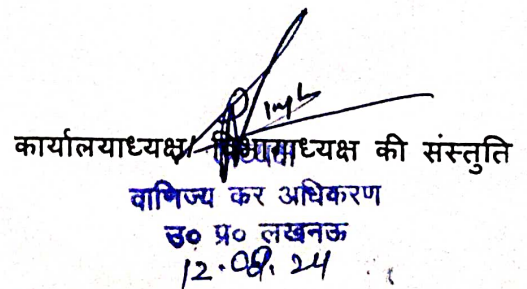 कार्यालयाध्यक्ष/ विभागाध्यक्ष की संस्तुति
वाणिज्य कर अधिकरण
उ० प्र० लखनऊ
12.08.24